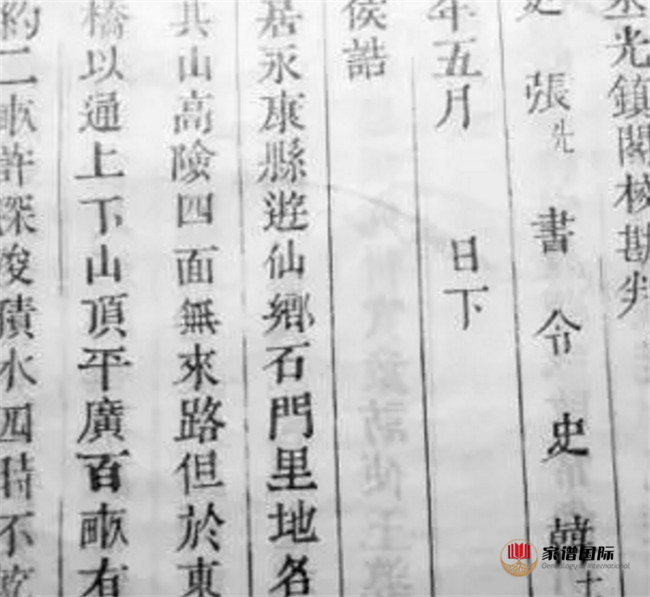 光鎮閣校勘判
張先 書令史韓士
年五月 日下
侯誥
居永康縣遊仙鄉石門里地名
其山高險四面無來路但於東
橋以通上下山頂平廣百畝有
約二畝許深浚積水四時不乾
家谱国际
Genealogy International